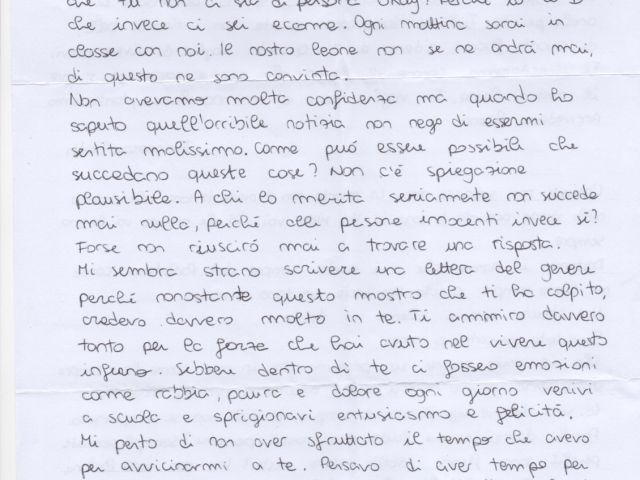 che tu non ci sia di persona okay? Perché io
che invece ci sei eccome. Ogni mattina sarai in
classe con noi. Il nostro leone non se ne andrà mai,
di questo ne sono convinta.
Non avevamo molta confidenza ma quando ho
saputo quell'orribile notizia non nego di essermi
sentita malissimo. Come può essere possibili che
succedano queste cose? Non c'è spiegazione
plausibile. A chi lo merita seriamente non succede
mai nulla, perché alle persone innocenti invece sì?
Forse non riuscirò mai a trovare una risposta.
Mi sembra strano scrivere una lettera del genere
perché nonostante questo mostro che ti ha colpito,
credevo davvero molto in te. Ti ammiro davvero
tanto per la forza che hai avuto nel vivere questo
inferno. Sebbene dentro di te ci fossero emozioni
come rabbia, paura e dolore ogni giorno venivi
a scuola e sprigionavi entusiasmo e felicità.
Mi pento di non aver sfruttato il tempo che avevo
per avvicinarmi a te. Pensavo di aver tempo per